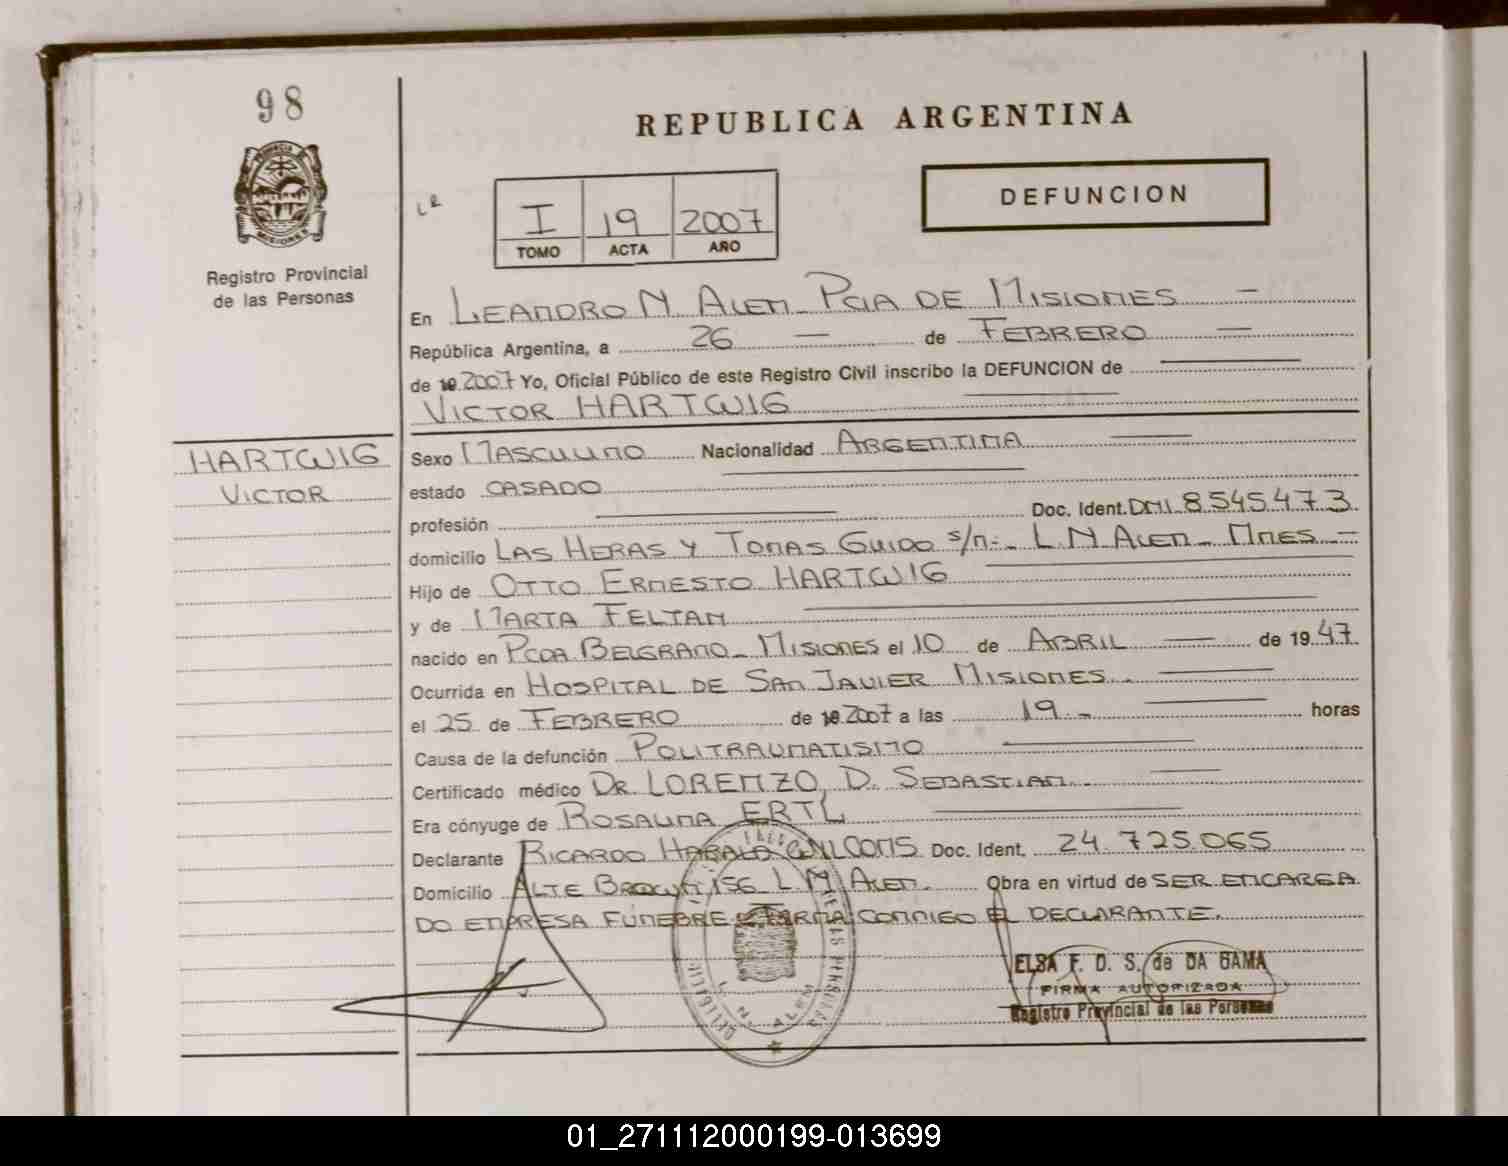 98
REPUBLICA ARGENTINA
DEFUNCION
LR
I 19 2007
TOMO ACTA AÑO
PROVINCIA DE
MISIONES
Registro Provincial
de las Personas
En LEANDRO N. ALEM - PCIA DE MISIONES —
República Argentina, a 26 — de FEBRERO —
de 19 2007 Yo, Oficial Público de este Registro Civil inscribo la DEFUNCION de
VICTOR HARTWIG
HARTWIG
VICTOR
Sexo MASCULINO Nacionalidad ARGENTINA
estado CASADO
profesión Doc. Ident. DNI. 8.545.473
domicilio LAS HERAS Y TOMAS GUIDO s/n.- L.N. ALEM - MNES -
Hijo de OTTO ERNESTO HARTWIG
y de MARTA FELTAN
nacido en PCDA. BELGRANO - MISIONES el 10 de ABRIL de 19 47
Ocurrida en HOSPITAL DE SAN JAVIER MISIONES.-
el 25 de FEBRERO de 19 2007 a las 19.- horas
Causa de la defunción POLITRAUMATISMO
Certificado médico DR. LORENZO, D. SEBASTIAN.-
Era cónyuge de ROSALINA ERTL
Declarante RICARDO HARALD Doc. Ident. 24.725.065
Domicilio ALTE BROWN 156 L.N. ALEM. Obra en virtud de SER ENCARGA
DO EMPRESA FÚNEBRE FIRMA CONMIGO EL DECLARANTE.
L. N. ALEM
ELSA F. D. S. de DA GAMA
FIRMA AUTORIZADA
Registro Provincial de las Personas
01_271112000199-013699